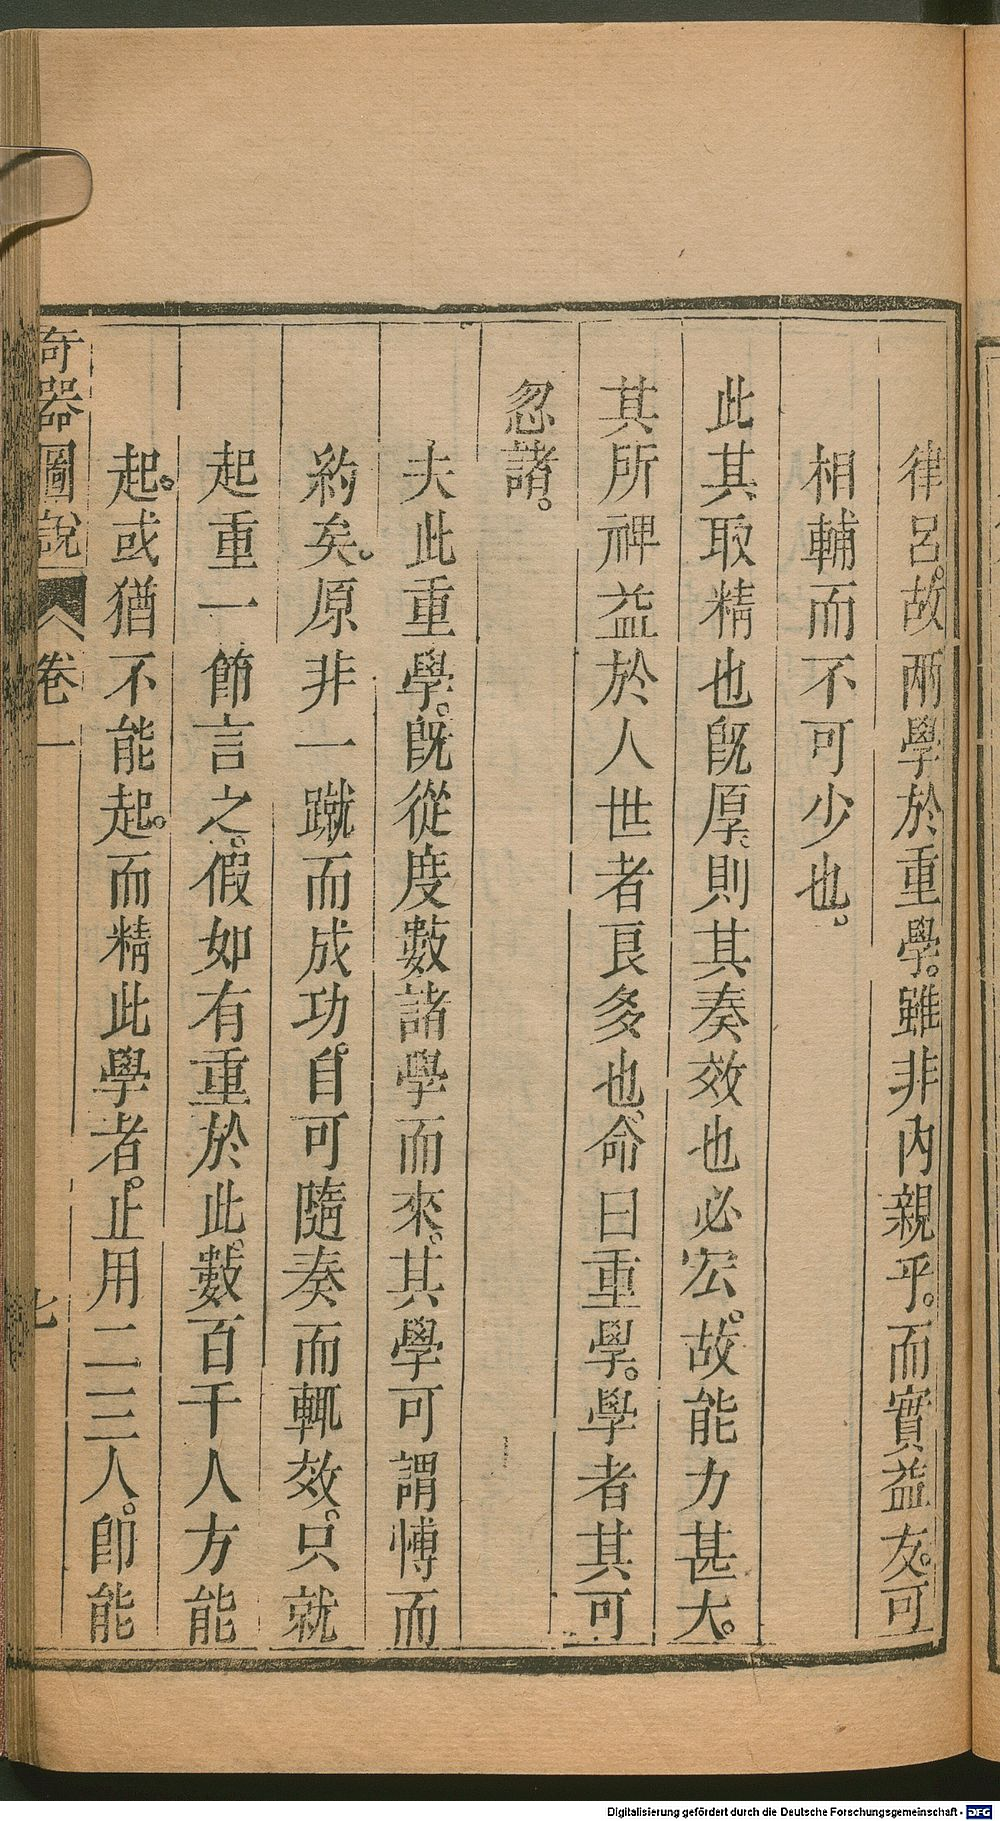 律呂。故兩學於重學。雖非內親乎。而實益友。可
相輔而不可少也。
此其取精也旣厚。則其奏效也必宏。故能力甚大。
其所裨益於人世者良多也。命曰重學。學者其可
忽諸。
夫此重學。旣從度數諸學而來。其學可謂愽而
約矣。原非一蹴而成功。自可隨奏而輒效。只就
起重一節言之。假如有重於此。數百千人方能
起。或猶不能起。而精此學者。止用二三人。卽能
奇器圖說 卷一 七
Digitalisierung gefördert durch die Deutsche Forschungsgemeinschaft - DFG